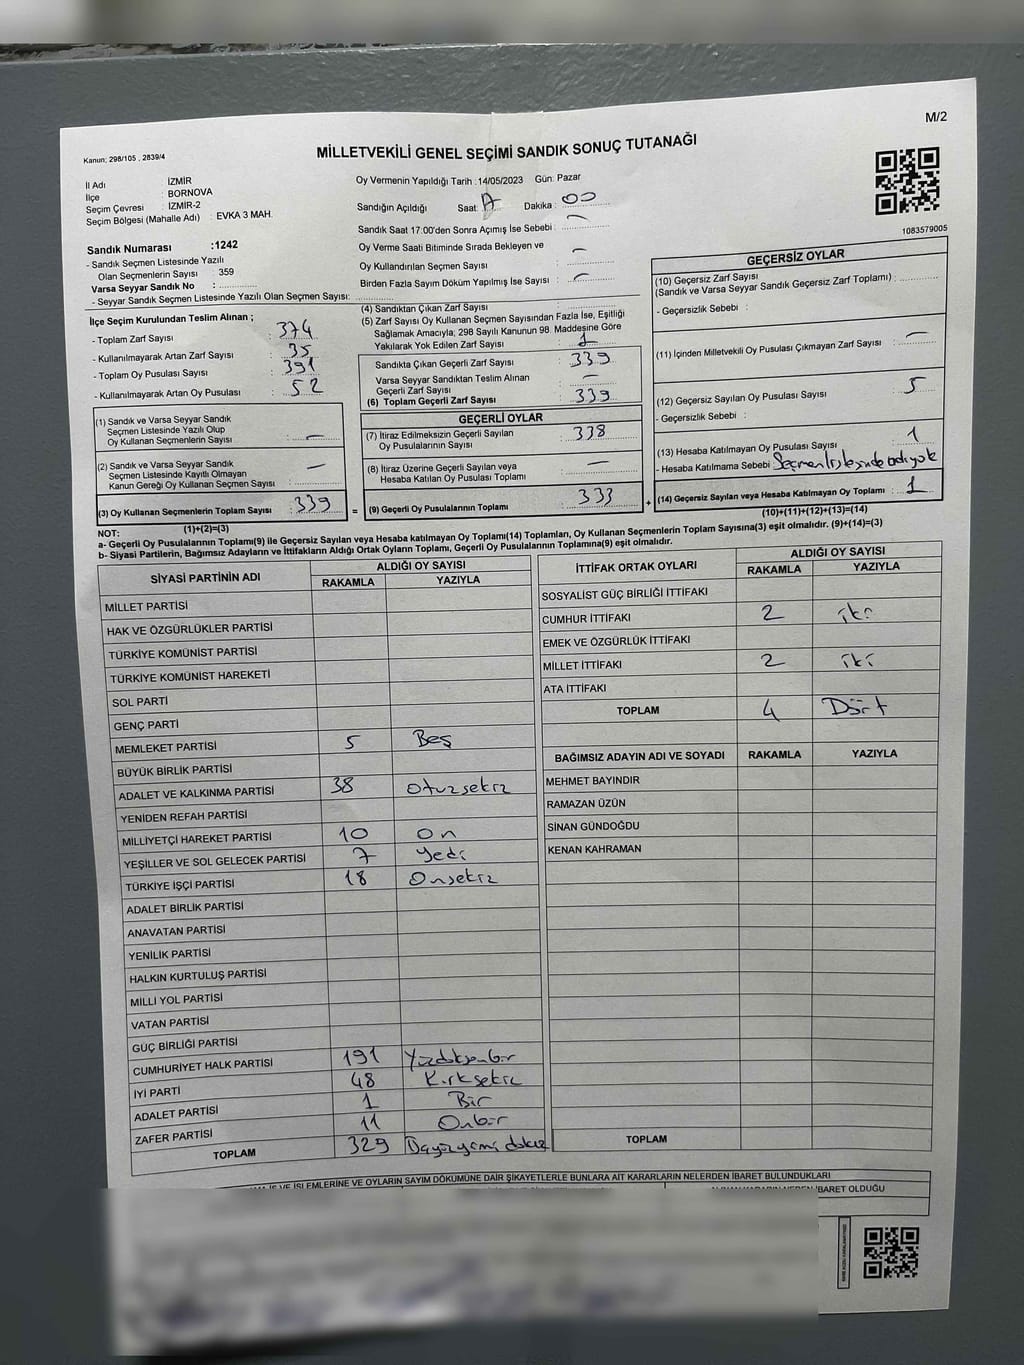 M/2
Kanun; 298/105 , 2839/4
MİLLETVEKİLİ GENEL SEÇİMİ SANDIK SONUÇ TUTANAĞI
1083579005
İl Adı : İZMİR
İlçe : BORNOVA
Seçim Çevresi : İZMİR-2
Seçim Bölgesi (Mahalle Adı) : EVKA 3 MAH.
Sandık Numarası :1242
- Sandık Seçmen Listesinde Yazılı
Olan Seçmenlerin Sayısı : 359
Varsa Seyyar Sandık No :
- Seyyar Sandık Seçmen Listesinde Yazılı Olan Seçmen Sayısı:
Oy Vermenin Yapıldığı Tarih :14/05/2023 Gün: Pazar
Sandığın Açıldığı Saat: Dakika : 00
Sandık Saat 17:00'den Sonra Açımış İse Sebebi : —
Oy Verme Saati Bitiminde Sırada Bekleyen ve
Oy Kullandırılan Seçmen Sayısı : —
Birden Fazla Sayım Döküm Yapılmış İse Sayısı : —
İlçe Seçim Kurulundan Teslim Alınan ;
- Toplam Zarf Sayısı : 374
- Kullanılmayarak Artan Zarf Sayısı : 35
- Toplam Oy Pusulası Sayısı : 391
- Kullanılmayarak Artan Oy Pusulası : 52
(1) Sandık ve Varsa Seyyar Sandık
Seçmen Listesinde Yazılı Olup
Oy Kullanan Seçmenlerin Sayısı : —
(2) Sandık ve Varsa Seyyar Sandık
Seçmen Listesinde Kayıtlı Olmayan
Kanun Gereği Oy Kullanan Seçmen Sayısı : —
(3) Oy Kullanan Seçmenlerin Toplam Sayısı : 339
(1)+(2)=(3)
(4) Sandıktan Çıkan Zarf Sayısı :
(5) Zarf Sayısı Oy Kullanan Seçmen Sayısından Fazla İse, Eşitliği
Sağlamak Amacıyla, 298 Sayılı Kanunun 98. Maddesine Göre
Yakılarak Yok Edilen Zarf Sayısı : 1
Sandıkta Çıkan Geçerli Zarf Sayısı : 339
Varsa Seyyar Sandıktan Teslim Alınan
Geçerli Zarf Sayısı : —
(6) Toplam Geçerli Zarf Sayısı : 339
GEÇERLİ OYLAR
(7) İtiraz Edilmeksizin Geçerli Sayılan
Oy Pusulalarının Sayısı : 338
(8) İtiraz Üzerine Geçerli Sayılan veya
Hesaba Katılan Oy Pusulası Toplamı : —
= (9) Geçerli Oy Pusulalarının Toplamı : 333 +
GEÇERSİZ OYLAR
(10) Geçersiz Zarf Sayısı
(Sandık ve Varsa Seyyar Sandık Geçersiz Zarf Toplamı) :
- Geçersizlik Sebebi :
(11) İçinden Milletvekili Oy Pusulası Çıkmayan Zarf Sayısı : —
(12) Geçersiz Sayılan Oy Pusulası Sayısı : 5
- Geçersizlik Sebebi :
(13) Hesaba Katılmayan Oy Pusulası Sayısı : 1
- Hesaba Katılmama Sebebi : Seçmen listesinde adı yok
(14) Geçersiz Sayılan veya Hesaba Katılmayan Oy Toplamı : 1
(10)+(11)+(12)+(13)=(14)
NOT:
a- Geçerli Oy Pusulalarının Toplamı(9) ile Geçersiz Sayılan veya Hesaba katılmayan Oy Toplamı(14) Toplamları, Oy Kullanan Seçmenlerin Toplam Sayısına(3) eşit olmalıdır. (9)+(14)=(3)
b- Siyasi Partilerin, Bağımsız Adayların ve İttifakların Aldığı Ortak Oyların Toplamı, Geçerli Oy Pusulalarının Toplamına(9) eşit olmalıdır.
SİYASİ PARTİNİN ADI ALDIĞI OY SAYISI
RAKAMLA YAZIYLA
MİLLET PARTİSİ
HAK VE ÖZGÜRLÜKLER PARTİSİ
TÜRKİYE KOMÜNİST PARTİSİ
TÜRKİYE KOMÜNİST HAREKETİ
SOL PARTİ
GENÇ PARTİ
MEMLEKET PARTİSİ 5 Beş
BÜYÜK BİRLİK PARTİSİ
ADALET VE KALKINMA PARTİSİ 38 Otuzsekiz
YENİDEN REFAH PARTİSİ
MİLLİYETÇİ HAREKET PARTİSİ 10 On
YEŞİLLER VE SOL GELECEK PARTİSİ 7 Yedi
TÜRKİYE İŞÇİ PARTİSİ 18 Onsekiz
ADALET BİRLİK PARTİSİ
ANAVATAN PARTİSİ
YENİLİK PARTİSİ
HALKIN KURTULUŞ PARTİSİ
MİLLİ YOL PARTİSİ
VATAN PARTİSİ
GÜÇ BİRLİĞİ PARTİSİ
CUMHURİYET HALK PARTİSİ 191 Yüzdoksanbir
İYİ PARTİ 48 Kırksekiz
ADALET PARTİSİ 1 Bir
ZAFER PARTİSİ 11 Onbir
TOPLAM 329
İTTİFAK ORTAK OYLARI ALDIĞI OY SAYISI
RAKAMLA YAZIYLA
SOSYALİST GÜÇ BİRLİĞİ İTTİFAKI
CUMHUR İTTİFAKI 2 iki
EMEK VE ÖZGÜRLÜK İTTİFAKI
MİLLET İTTİFAKI 2 iki
ATA İTTİFAKI
TOPLAM 4 Dört
BAĞIMSIZ ADAYIN ADI VE SOYADI RAKAMLA YAZIYLA
MEHMET BAYINDIR
RAMAZAN ÜZÜN
SİNAN GÜNDOĞDU
KENAN KAHRAMAN
TOPLAM
İŞLEMLERİNE VE OYLARIN SAYIM DÖKÜMÜNE DAİR ŞİKAYETLERLE BUNLARA AİT KARARLARIN NELERDEN İBARET BULUNDUKLARI
İBARET OLDUĞU